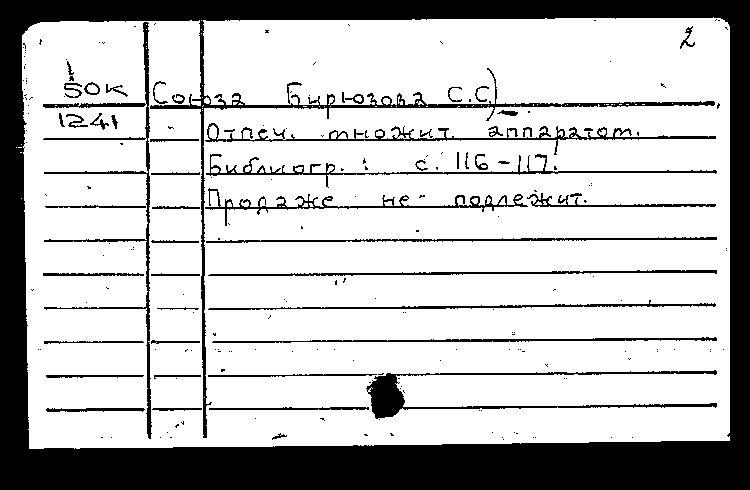 2
50К Союза Бирюзова С.С.)
1241
Отпеч. множит. аппаратом.
Библиогр.: с. 116-117.
Продаже не подлежит.